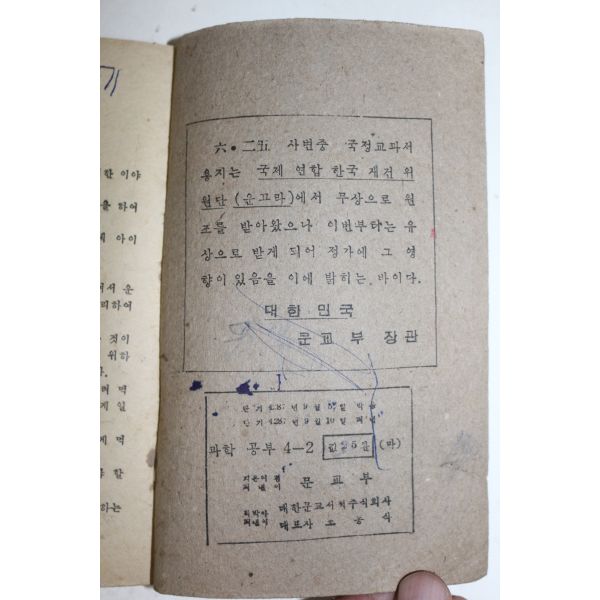 기
한 이야
을 하여
아이
서 운
리하여
것이
위하
다.
러 먹
게 일
게 먹
야 할
하는
六•二五 사변중 국정교과서
용지는 국제 연합 한국 재건 위
원단 (운끄라)에서 무상으로 원
조를 받아왔으나 이번부터는 유
상으로 받게 되어 정가에 그 영
향이 있음을 이에 밝히는 바이다.
대한 민국
문교부 장관
단기 4287년 9월 5일 박음
단기 4287년 9월 10일 펴냄
과학 공부 4-2 값 25환 (마)
지은이 겸
펴낸이 문교부
박아
펴낸이 대한문교서적주식회사
대표자